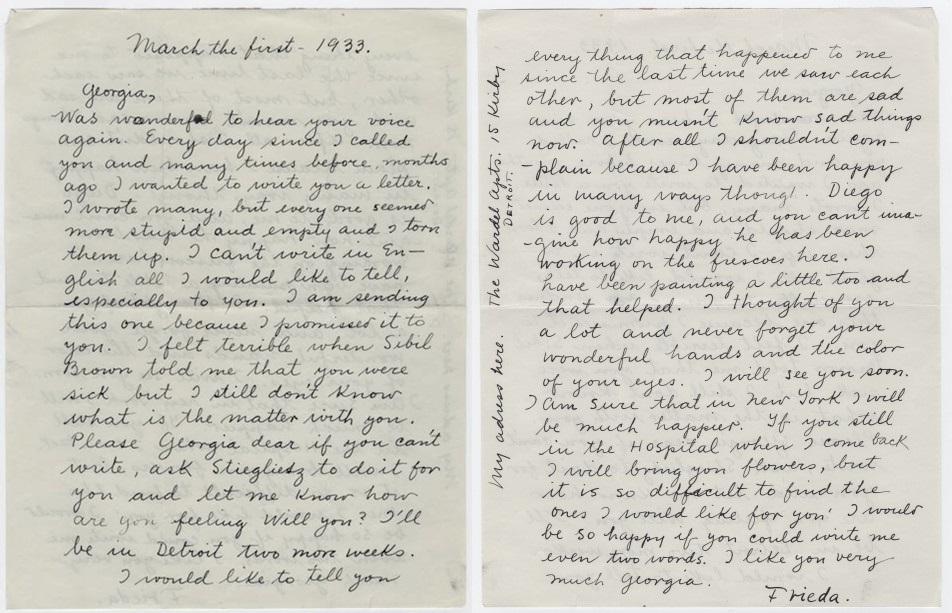 March the first - 1933.
Georgia,
Was wonderful to hear your voice
again. Every day since I called
you and many times before months
ago I wanted to write you a letter.
I wrote many, but every one seemed
more stupid and empty and I torn
them up. I can't write in En-
glish all I would like to tell,
especially to you. I am sending
this one because I promissed it to
you. I felt terrible when Sibil
Brown told me that you were
sick but I still don't know
what is the matter with you.
Please Georgia dear if you can't
write, ask Stiegliesz to do it for
you and let me know how
are you feeling Will you? I'll
be in Detroit two more weeks.
I would like to tell you
every thing that happened to me
since the last time we saw each
other, but most of them are sad
and you musn't know sad things
now. After all I shouldn't com-
-plain because I have been happy
in many ways though. Diego
is good to me, and you can't ima-
-gine how happy he has been
working on the frescoes here. I
have been painting a little too and
that helped. I thought of you
a lot and never forget your
wonderful hands and the color
of your eyes. I will see you soon.
I am sure that in New York I will
be much happier. If you still
in the Hospital when I come back
I will bring you flowers, but
it is so difficult to find the
ones I would like for you. I would
be so happy if you could write me
even two words. I like you very
much Georgia.
Frieda.
My adress here. The Wardel Apts. 15 Kirby
DETROIT.